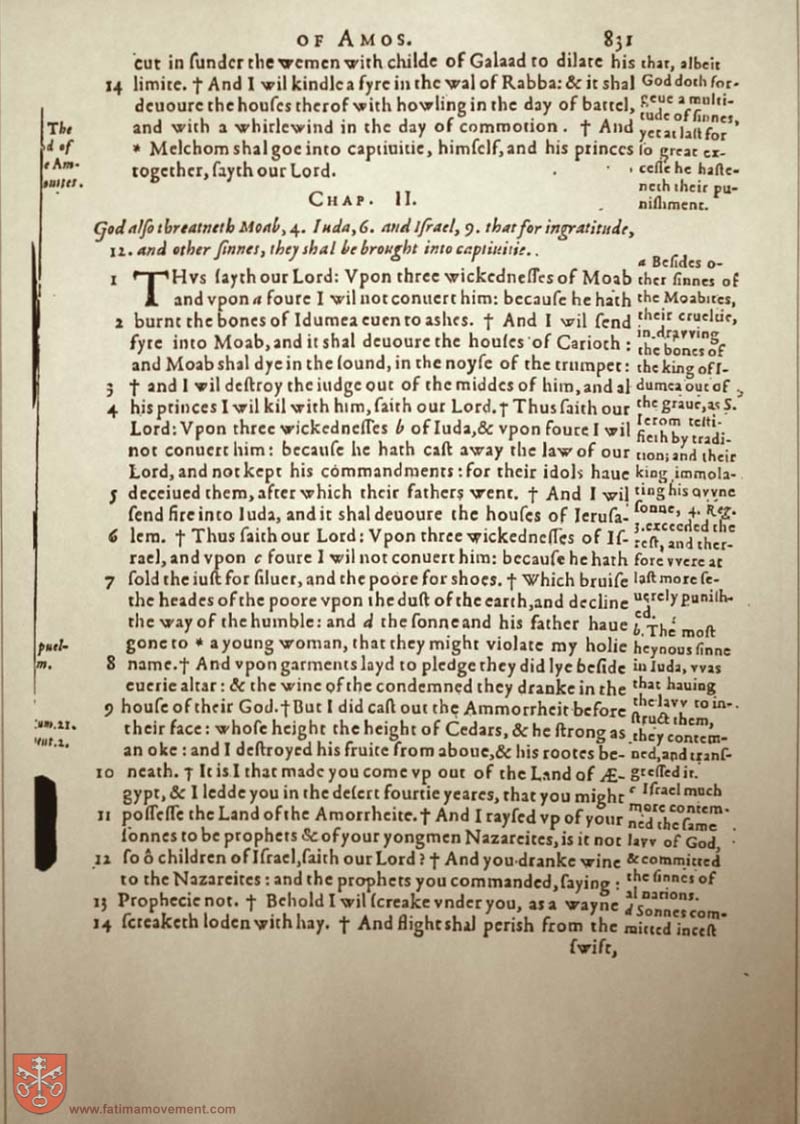 OF AMOS. 831
cut in ſunder the wemen with childe of Galaad to dilate his
14 limite. † And I wil kindle a fyre in the wal of Rabba: & it shal
deuoure the houſes therof with howling in the day of battel,
and with a whirlewind in the day of commotion. † And
* Melchom shal goe into captiuitie, himſelf, and his princes
together, ſayth our Lord.
The
d of
e Am-
that, albeit
God doth for-
geue a multi-
tude of ſinnes,
yet at laſt for
ſo great ex-
ceſſe he haſte-
neth their pu-
niſhment.
CHAP. II.
God alſo threatneth Moab, 4. Iuda, 6. and Iſrael, 9. that for ingratitude,
12. and other ſinnes, they shal be brought into captiuitie..
1 THvs ſayth our Lord: Vpon three wickedneſſes of Moab
and vpon a foure I wil not conuert him: becauſe he hath
2 burnt the bones of Idumea euen to ashes. † And I wil ſend
fyre into Moab, and it shal deuoure the houſes of Carioth:
and Moab shal dye in the ſound, in the noyſe of the trumpet:
3 † and I wil deſtroy the iudge out of the middes of him, and al
4 his princes I wil kil with him, ſaith our Lord. † Thus ſaith our
Lord: Vpon three wickedneſſes b of Iuda, & vpon foure I wil
not conuert him: becauſe he hath caſt away the law of our
Lord, and not kept his commandments: for their idols haue
5 deceiued them, after which their fathers went. † And I wil
ſend fire into Iuda, and it shal deuoure the houſes of Ieruſa-
6 lem. † Thus ſaith our Lord: Vpon three wickedneſſes of Iſ-
rael, and vpon c foure I wil not conuert him: becauſe he hath
7 ſold the iuſt for ſiluer, and the poore for shoes. † Which bruiſe
the heades of the poore vpon the duſt of the earth, and decline
the way of the humble: and d the ſonne and his father haue
gone to * a young woman, that they might violate my holie
8 name. † And vpon garments layd to pledge they did lye beſide
euerie altar: & the wine of the condemned they dranke in the
9 houſe of their God. † But I did caſt out the Ammorrheit before
their face: whoſe height the height of Cedars, & he ſtrong as
an oke: and I deſtroyed his fruite from aboue, & his rootes be-
10 neath. † It is I that made you come vp out of the Land of Æ-
gypt, & I ledde you in the deſert fourtie yeares, that you might
11 poſſeſſe the Land of the Amorrheite. † And I rayſed vp of your
ſonnes to be prophets & of your yongmen Nazareites, is it not
12 ſo ô children of Iſrael, ſaith our Lord? † And you dranke wine
to the Nazareites: and the prophets you commanded, ſaying:
13 Prophecie not. † Behold I wil ſcreake vnder you, as a wayne
14 ſcreaketh loden with hay. † And flight shal perish from the
ſwift,
puel-
m.
um.21.
eut.2.
a Beſides o-
ther ſinnes of
the Moabites,
their crueltie,
in dravving
the bones of
the king of I-
dumea out of
the graue, as S.
Ierom teſti-
fieth by tradi-
tion; and their
king immola-
ting his ovvne
ſonne, 4. Reg.
3. exceeded the
reſt, and ther-
fore vvere at
laſt more ſe-
uerely puniſh-
ed.
b. The moſt
heynous ſinne
in Iuda, vvas
that hauing
the lavv to in-
ſtruct them,
they contem-
ned, and tranſ-
greſſed it.
c Iſrael much
more contem-
ned the ſame
lavv of God,
& committed
the ſinnes of
al nations.
d Sonnes com-
mitted inceſt
www.fatimamovement.com